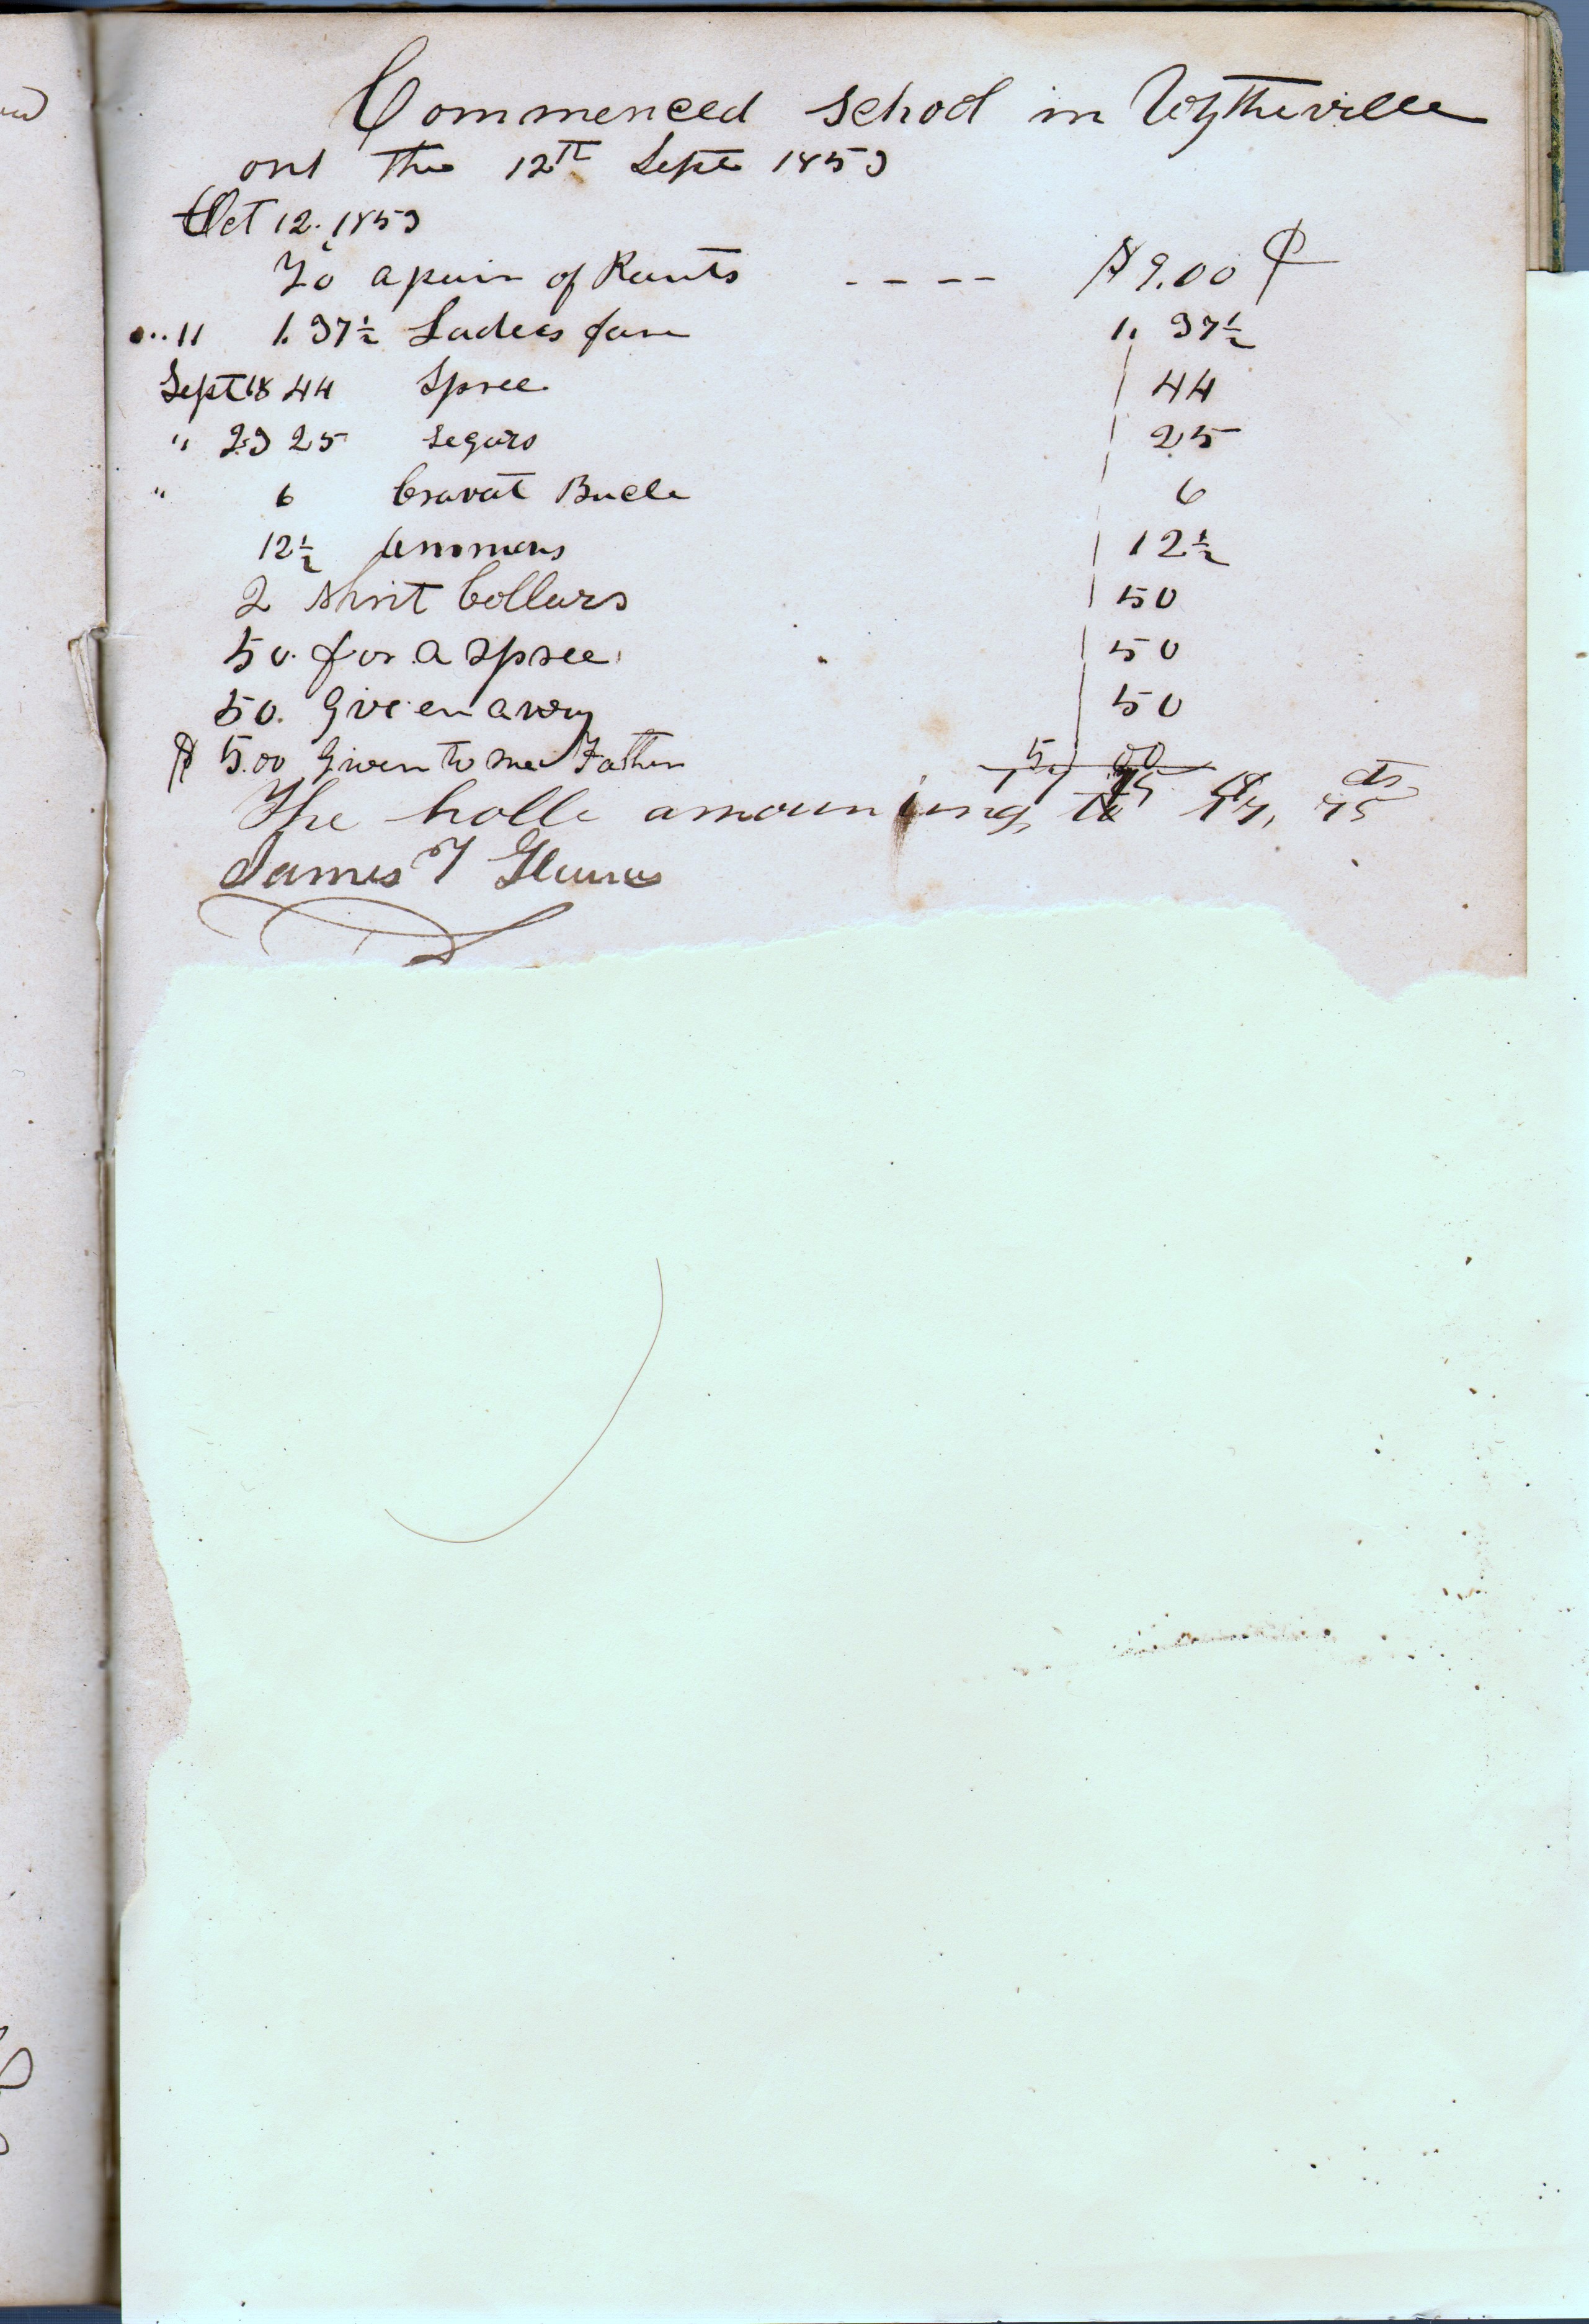 Commenced school in Wytheville
on the 12th Sept 1853
Oct 12. 1853
To a pair of Pants - - - - $9.00 ¢
" 11 1.37½ Ladies fan 1. 37½
Sept 18 44 Spree 44
" 23 25 Segars 25
" 6 Cravat Bucle 6
12½ 12½
2 Shirt Collars 50
50. for a spree 50
50. Given away 50
$ 5.00 Given to me Father 5 00
17 75
The holle amouning to $17, 75 cts
James T